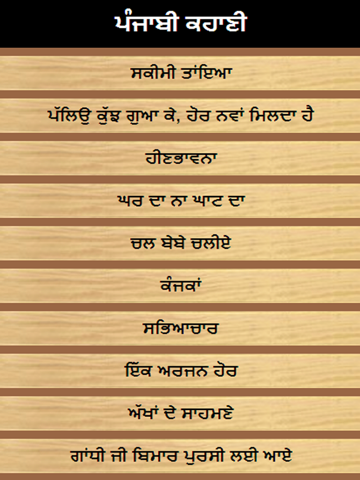 ਪੰਜਾਬੀ ਕਹਾਣੀ
ਸਕੀਮੀ ਤਾਂਇਆ
ਪੱਲਿਉ ਕੁੱਝ ਗੁਆ ਕੇ, ਹੋਰ ਨਵਾਂ ਮਿਲਦਾ ਹੈ
ਹੀਣਭਾਵਨਾ
ਘਰ ਦਾ ਨਾ ਘਾਟ ਦਾ
ਚਲ ਬੇਬੇ ਚਲੀਏ
ਕੰਜਕਾਂ
ਸਭਿਆਚਾਰ
ਇੱਕ ਅਰਜਨ ਹੋਰ
ਅੱਖਾਂ ਦੇ ਸਾਹਮਣੇ
ਗਾਂਧੀ ਜੀ ਬਿਮਾਰ ਪੁਰਸੀ ਲਈ ਆਏ